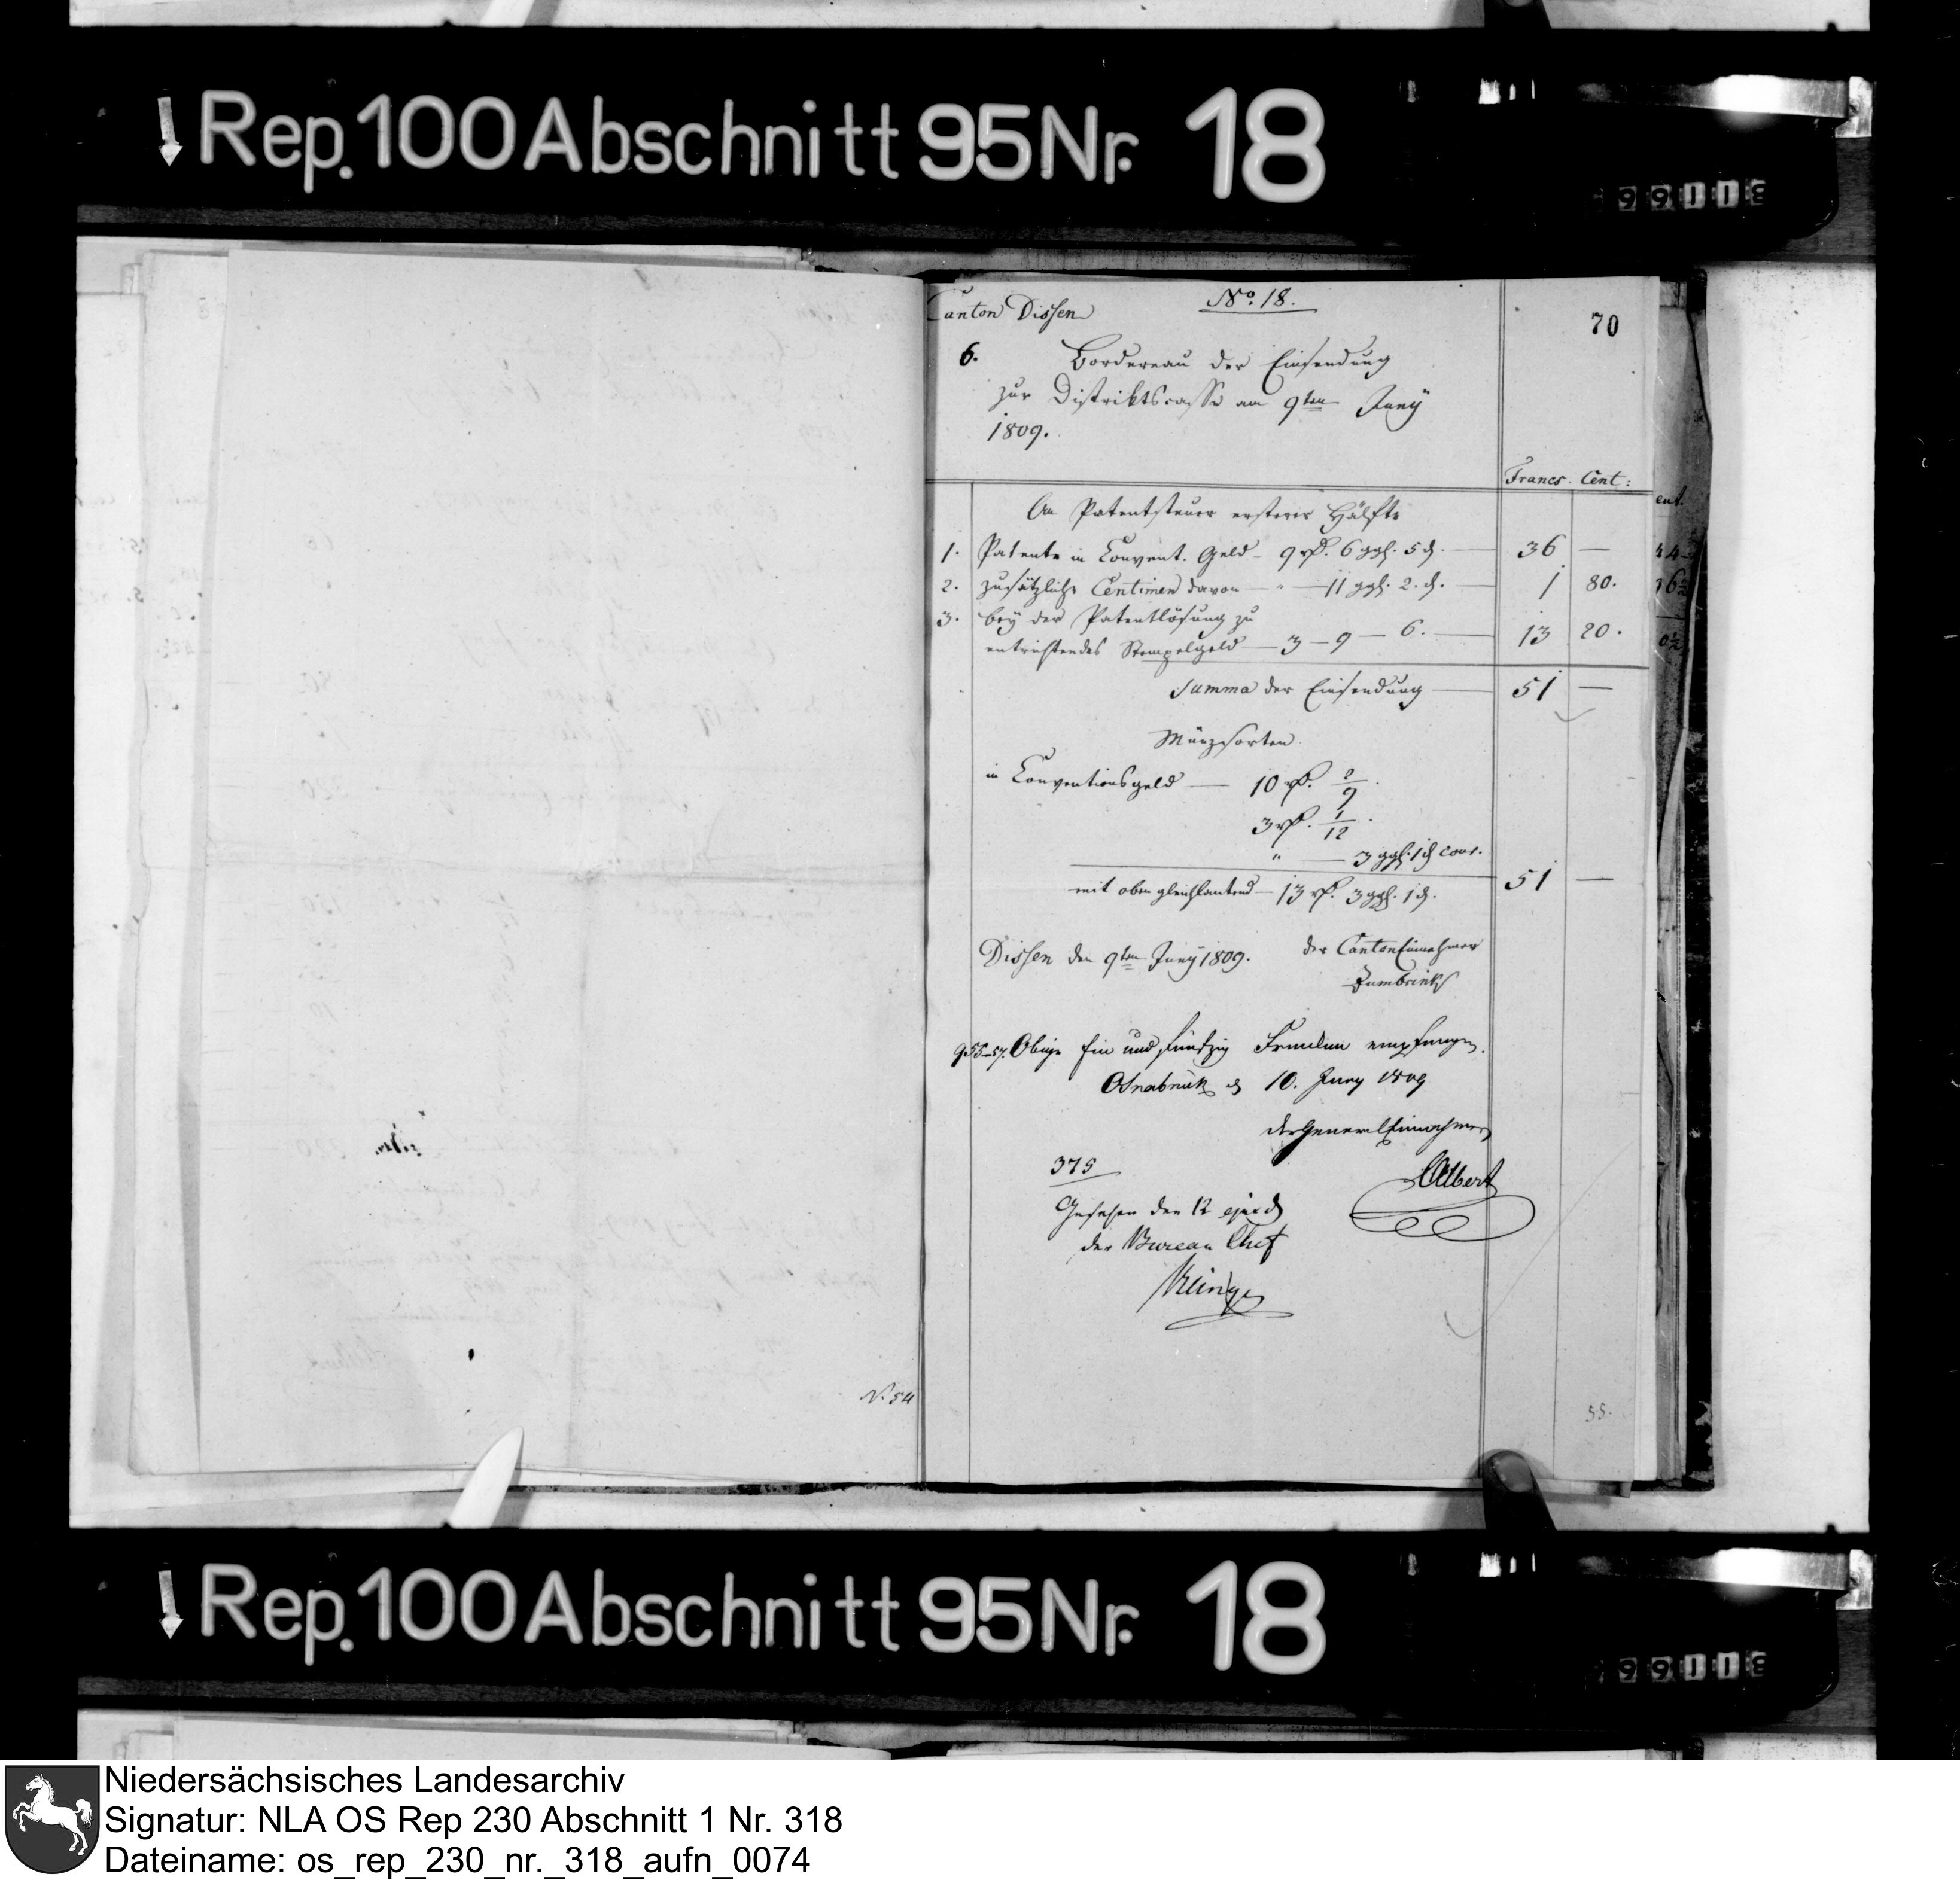 Rep. 100 Abschnitt 95 Nr. 18
99118
Canton Dissen
No. 18.
70
6.
Bordereau der Einsendung
zur Distriktscasse am 9ten Juny
1809.
Francs. Cent:
An Patentsteuer ersterer Hälfte
1. Patente in Convent. Geld - 9 rthl. 6 ggl. 5 d. — 36 —
2. zusätzliche Centimen davon — " — 11 ggl. 2. d. — 1 80.
3. bey der Patentlösung zu
entrichtendes Stempelgeld — 3 — 9 — 6. — 13 20.
Summa der Einsendung — 51 —
Münzsorten
in Conventionsgeld — 10 rthl. 2/9.
3 rthl. 1/12.
" — 3 ggl. 1 d cour.
mit oben gleichlautend — 13 rthl. 3 ggl. 1 d. 51 —
Dissen den 9ten Juny 1809. der Canton Einnehmer
Zumbrink
955-57. Obige Ein und funfzig Franken empfangen.
Osnabrück d 10. Juny 1809
der General Einnehmer
375
Albert
Gesehen den 12 ejusd
der Bureau Chef
N. 54
55.
Rep. 100 Abschnitt 95 Nr. 18
99118
Niedersächsisches Landesarchiv
Signatur: NLA OS Rep 230 Abschnitt 1 Nr. 318
Dateiname: os_rep_230_nr._318_aufn_0074